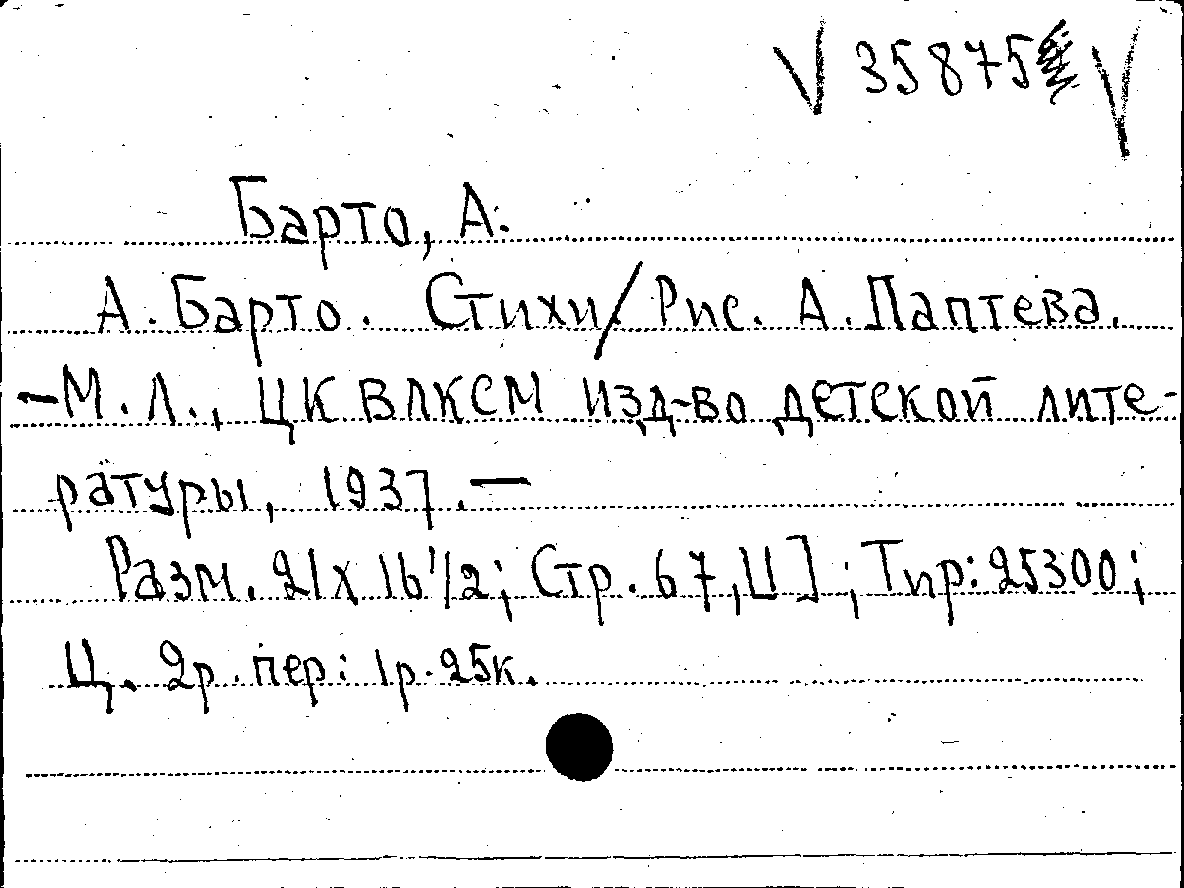 V 35875 V
Барто, А.
А. Барто. Стихи/Рис. А. Лаптева.
–М. Л., ЦК ВЛКСМ Изд-во детской лите-
ратуры, 1937.—
Разм. 21х16 1/2; Стр. 67,[1]; Тир: 25300;
Ц. 2р. пер: 1р. 25к.